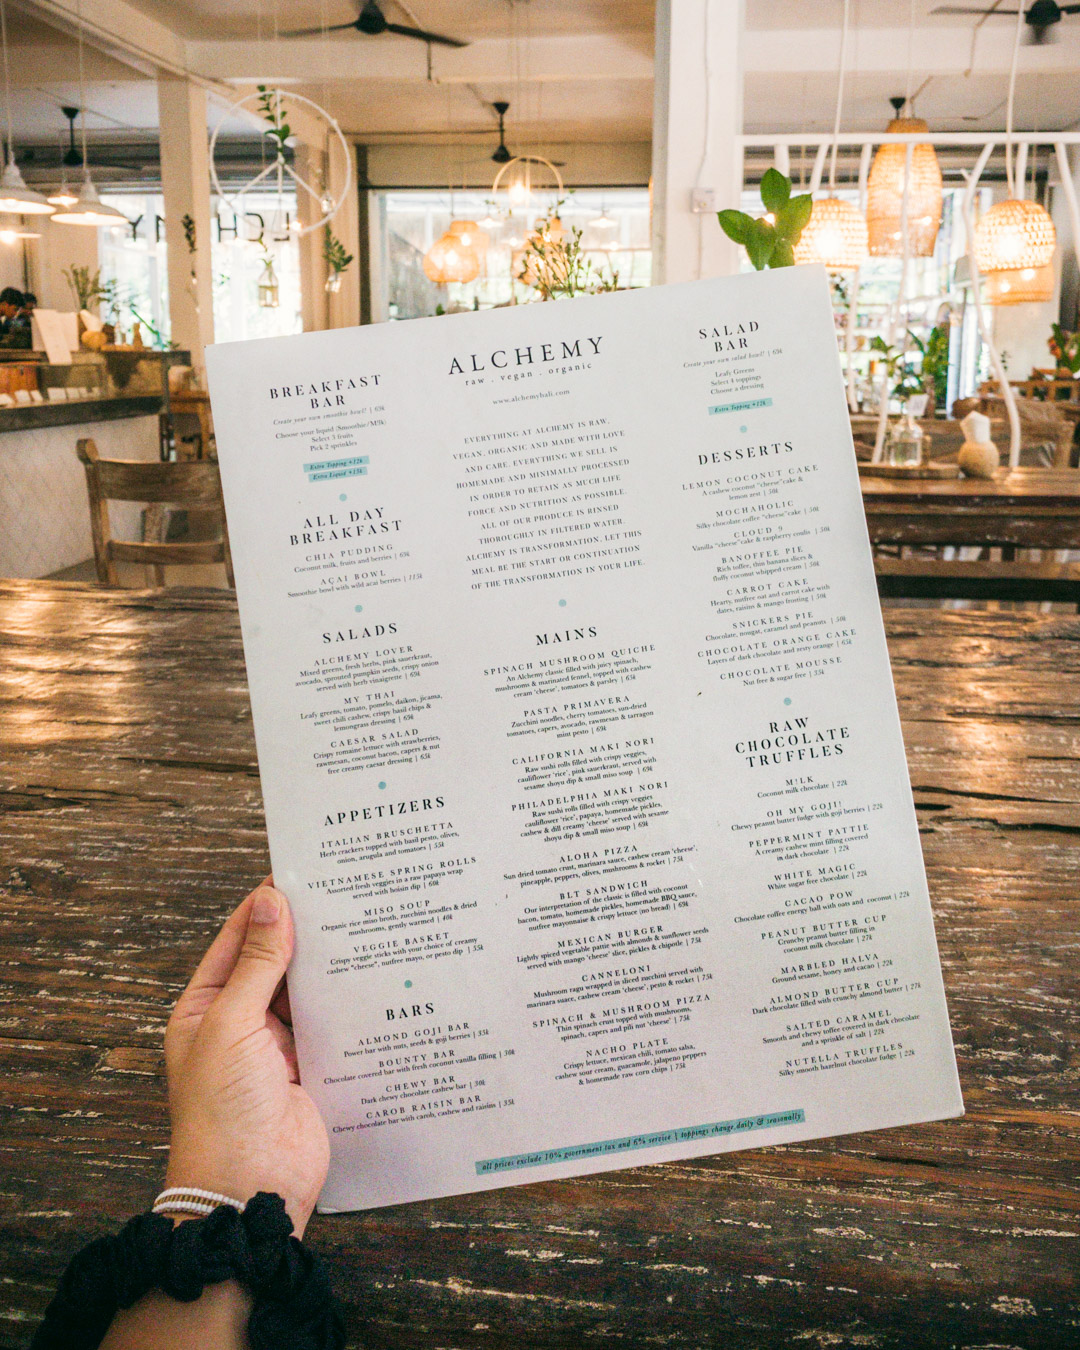 LCHEMY
BREAKFAST
BAR
Create your own smoothie bowl! | 65k
Choose your liquid (Smoothie/M!lk)
Select 3 fruits
Pick 2 sprinkles
Extra Topping +12k
Extra Liquid +15k
ALL DAY
BREAKFAST
CHIA PUDDING
Coconut milk, fruits and berries | 65k
AÇAI BOWL
Smoothie bowl with wild acai berries | 115k
SALADS
ALCHEMY LOVER
Mixed greens, fresh herbs, pink sauerkraut,
avocado, sprouted pumpkin seeds, crispy onion
served with herb vinaigrette | 69k
MY THAI
Leafy greens, tomato, pomelo, daikon, jicama,
sweet chili cashew, crispy basil chips &
lemongrass dressing | 69k
CAESAR SALAD
Crispy romaine lettuce with strawberries,
rawmesan, coconut bacon, capers & nut
free creamy caesar dressing | 65k
APPETIZERS
ITALIAN BRUSCHETTA
Herb crackers topped with basil pesto, olives,
onion, arugula and tomatoes | 55k
VIETNAMESE SPRING ROLLS
Assorted fresh veggies in a raw papaya wrap
served with hoisin dip | 60k
MISO SOUP
Organic rice miso broth, zucchini noodles & dried
mushrooms, gently warmed | 40k
VEGGIE BASKET
Crispy veggie sticks with your choice of creamy
cashew "cheese", nutfree mayo, or pesto dip | 55k
BARS
ALMOND GOJI BAR
Power bar with nuts, seeds & goji berries | 35k
BOUNTY BAR
Chocolate covered bar with fresh coconut vanilla filling | 30k
CHEWY BAR
Dark chewy chocolate cashew bar | 30k
CAROB RAISIN BAR
Chewy chocolate bar with carob, cashew and raisins | 35k
ALCHEMY
raw . vegan . organic
www.alchemybali.com
EVERYTHING AT ALCHEMY IS RAW,
VEGAN, ORGANIC AND MADE WITH LOVE
AND CARE. EVERYTHING WE SELL IS
HOMEMADE AND MINIMALLY PROCESSED
IN ORDER TO RETAIN AS MUCH LIFE
FORCE AND NUTRITION AS POSSIBLE.
ALL OF OUR PRODUCE IS RINSED
THOROUGHLY IN FILTERED WATER.
ALCHEMY IS TRANSFORMATION. LET THIS
MEAL BE THE START OR CONTINUATION
OF THE TRANSFORMATION IN YOUR LIFE.
MAINS
SPINACH MUSHROOM QUICHE
An Alchemy classic filled with juicy spinach,
mushrooms & marinated fennel, topped with cashew
cream 'cheese', tomatoes & parsley | 65k
PASTA PRIMAVERA
Zucchini noodles, cherry tomatoes, sun-dried
tomatoes, capers, avocado, rawmesan & tarragon
mint pesto | 69k
CALIFORNIA MAKI NORI
Raw sushi rolls filled with crispy veggies,
cauliflower 'rice', pink sauerkraut, served with
sesame shoyu dip & small miso soup | 69k
PHILADELPHIA MAKI NORI
Raw sushi rolls filled with crispy veggies
cauliflower 'rice', papaya, homemade pickles,
cashew & dill creamy 'cheese' served with sesame
shoyu dip & small miso soup | 69k
ALOHA PIZZA
Sun dried tomato crust, marinara sauce, cashew cream 'cheese',
pineapple, peppers, olives, mushrooms & rocket | 75k
BLT SANDWICH
Our interpretation of the classic is filled with coconut
bacon, tomato, homemade pickles, homemade BBQ sauce,
nutfree mayonnaise & crispy lettuce (no bread) | 69k
MEXICAN BURGER
Lightly spiced vegetable pattie with almonds & sunflower seeds
served with mango 'cheese' slice, pickles & chipotle | 75k
CANNELONI
Mushroom ragu wrapped in sliced zucchini served with
marinara suace, cashew cream 'cheese', pesto & rocket | 75k
SPINACH & MUSHROOM PIZZA
Thin spinach crust topped with mushrooms,
spinach, capers and pili nut 'cheese' | 75k
NACHO PLATE
Crispy lettuce, mexican chili, tomato salsa,
cashew sour cream, guaramole, jalapeno peppers
& homemade raw corn chips | 75k
SALAD
BAR
Create your own salad bowl! | 69k
Leafy Greens
Select 8 toppings
Choose a dressing
Extra Topping +12k
DESSERTS
LEMON COCONUT CAKE
A cashew coconut "cheese"cake &
lemon zest | 50k
MOCHAHOLIC
Silky chocolate coffee "cheese"cake | 50k
CLOUD 9
Vanilla "cheese"cake & raspberry coulis | 50k
BANOFFEE PIE
Rich toffee, thin banana slices &
fluffy coconut whipped cream | 50k
CARROT CAKE
Hearty, nutfree oat and carrot cake with
dates, raisins & mango frosting | 50k
SNICKERS PIE
Chocolate, nougat, caramel and peanuts | 50k
CHOCOLATE ORANGE CAKE
Layers of dark chocolate and zesty orange | 65k
CHOCOLATE MOUSSE
Nut free & sugar free | 35k
RAW
CHOCOLATE
TRUFFLES
M!LK
Coconut milk chocolate | 22k
OH MY GOJI!
Chewy peanut butter fudge with goji berries | 22k
PEPPERMINT PATTIE
A creamy cashew mint filling covered
in dark chocolate | 22k
WHITE MAGIC
White sugar free chocolate | 22k
CACAO POW
Chocolate coffee energy ball with oats and coconut | 22k
PEANUT BUTTER CUP
Crunchy peanut butter filling in
coconut milk chocolate | 27k
MARBLED HALVA
Ground sesame, honey and cacao | 22k
ALMOND BUTTER CUP
Dark chocolate filled with crunchy almond butter | 27k
SALTED CARAMEL
Smooth and chewy toffee covered in dark chocolate
and a sprinkle of salt | 22k
NUTELLA TRUFFLES
Silky smooth hazelnut chocolate fudge | 22k
all prices exclude 10% government tax and 6% service | toppings change daily & seasonally